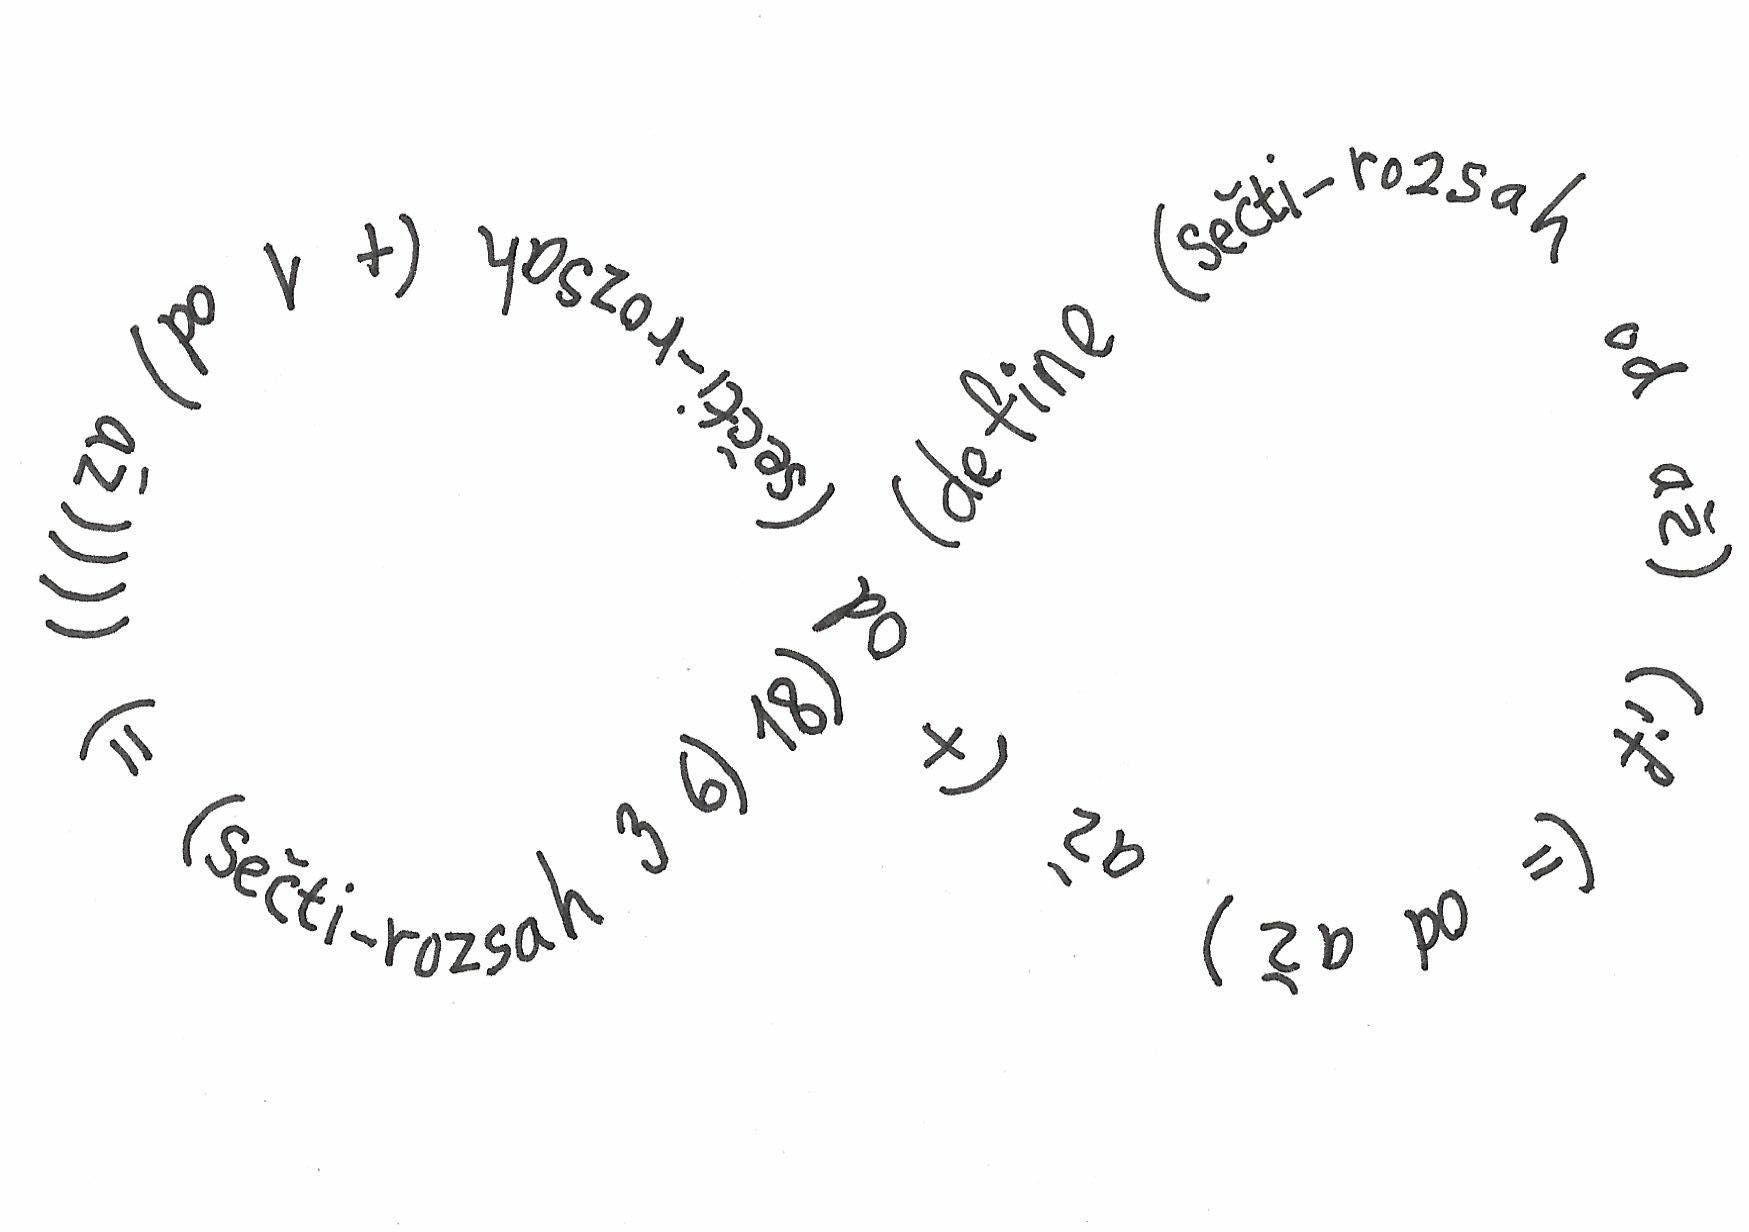 (define (sečti-rozsah od až) (if (= od až) až (+ od (sečti-rozsah (+ 1 od) až)))) (= (sečti-rozsah 3 6) 18)